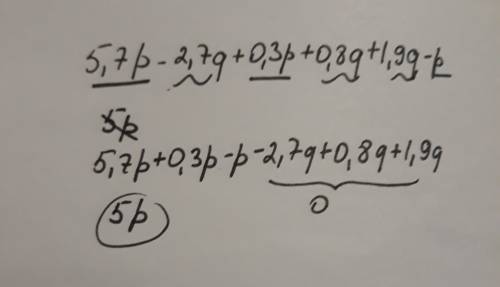 5,7p - 2,7q + 0,3p + 0,8q + 1,9q - p
5p
5,7p + 0,3p - p - 2,7q + 0,8q + 1,9q
5p 0